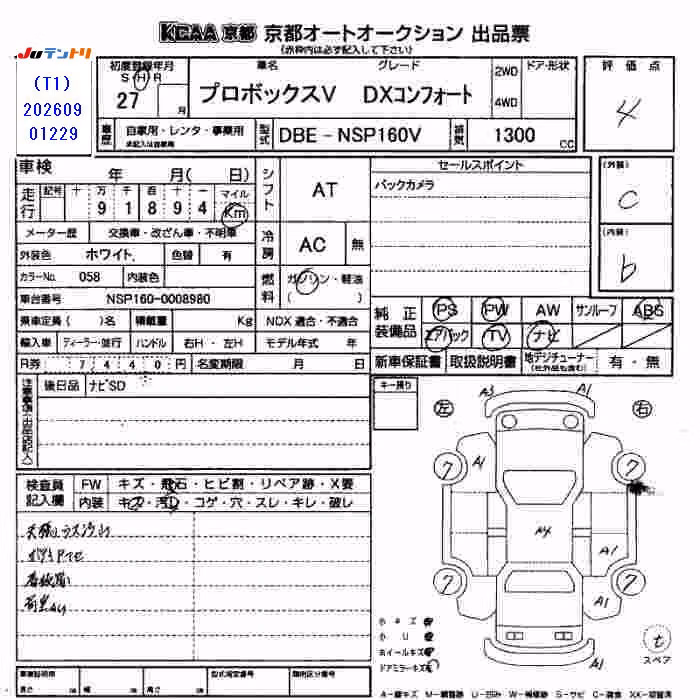 KCAA 京都 京都オートオークション 出品票
(赤枠内は必ず記入して下さい)
JUテントリ
(T1)
202609
01229
初度登録年月
S H R
27 月
車名 グレード
プロボックスV DXコンフォート
2WD
4WD
ドア・形状
評価点
4
車歴 自家用・レンタ・事業用
未記入は自家用
型式 DBE-NSP160V
排気 1300 cc
車検 年 月( 日)
走行 記号 十 万 千 百 十 一 マイル
9 1 8 9 4 Km
シフト AT
セールスポイント
バックカメラ
(外装)
C
(内装)
b
メーター歴 交換車・改ざん車・不明車
外装色 ホワイト. 色替 有
冷房 AC 無
カラーNo. 058 内装色
燃料 ガソリン・軽油
( )
車台番号 NSP160-0008980
乗車定員 ( )名 積載量 Kg NOX 適合・不適合
輸入車 ディーラー・並行 ハンドル 右H・左H モデル年式 年
純正装備品 PS PW AW サンルーフ ABS
エアバック TV ナビ
R券 7 4 4 0 円 名変期限 月 日
新車保証書 取扱説明書 地デジチューナー 有・無
(社外品も含む)
後日品 ナビSD
キー預り
左 右
A3 A1
7 A1 7
A4 A1
7 7
A1
検査員記入欄 FW キズ・飛石・ヒビ割・リペア跡・X要
内装 キズ・汚れ・コゲ・穴・スレ・キレ・破レ
小キズ
小U
ホイールキズ
ドアミラーキズ
t
スペア
車検証明用 長さ cm 幅 cm 高さ cm
型式指定番号 類別区分番号